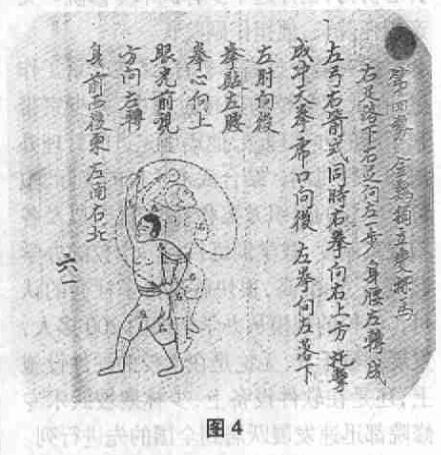 第四势 金鸡独立变拗马
右足落下右足向左一步身腰左转成
左弓右箭式同時右拳向右上方屯擊
成冲天拳虎口向後左拳向左落下
左肘向後
拳贴左腰
拳心向上
眼光前視
方向左轉
身前西後東左南右北
六一
图 4